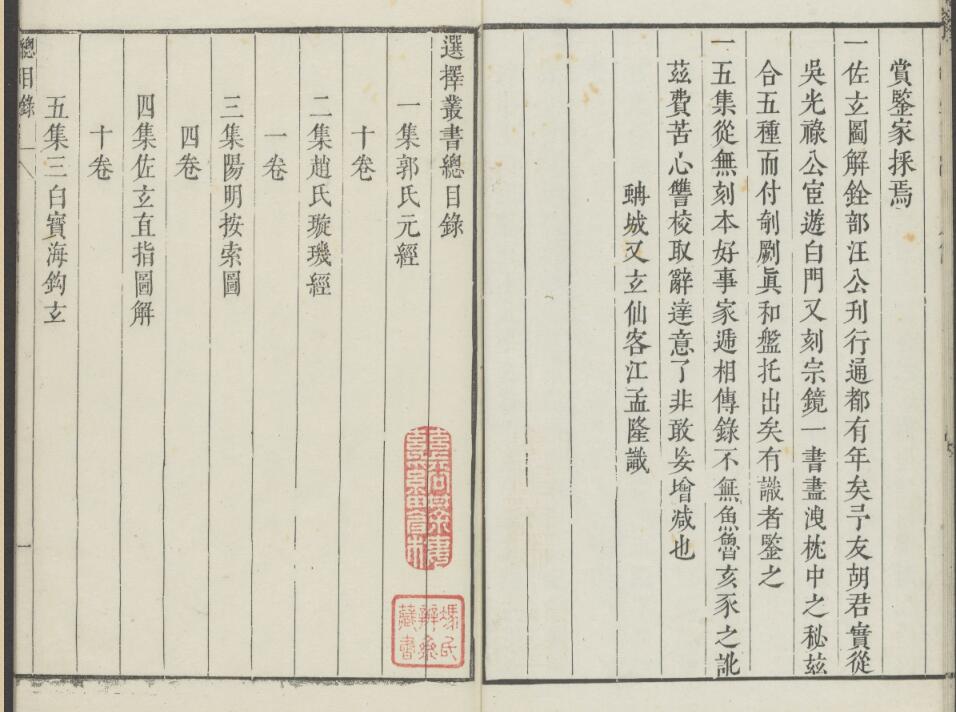 賞鑒家採焉
一佐玄圖解銓部汪公刋行通都有年矣予友胡君實從
吳光祿公宦遊白門又刻宗鏡一書盡洩枕中之秘兹
合五種而付剞劂真和盤托出矣有識者鑒之
一五集從無刻本好事家遞相傳錄不無魚魯亥豕之訛
茲費苦心讐校取辭達意了非敢妄增减也
蚺城又玄仙客江孟隆識
選擇叢書總目錄
一集郭氏元經
十卷
二集趙氏璇璣經
一卷
三集陽明按索圖
四卷
四集佐玄直指圖解
十卷
五集三白寶海鈎玄
總目錄
一
藏書